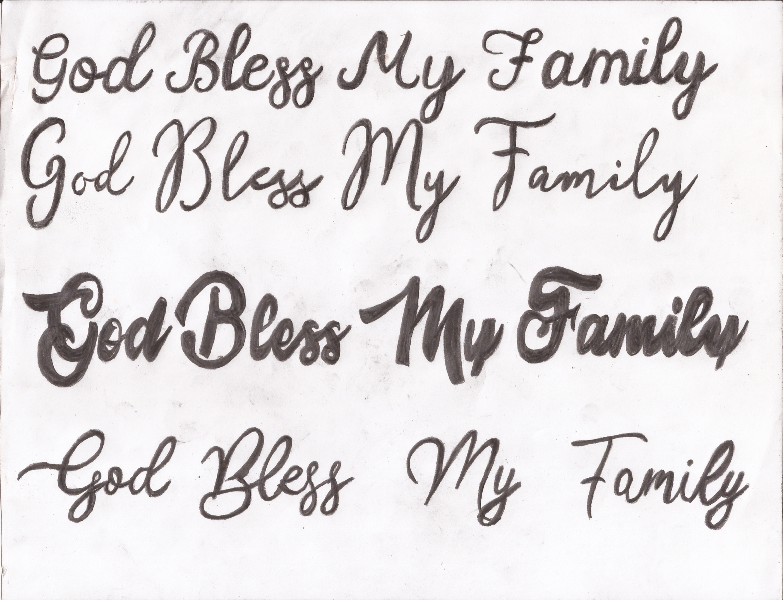 God Bless My Family
God Bless My Family
God Bless My Family
God Bless My Family